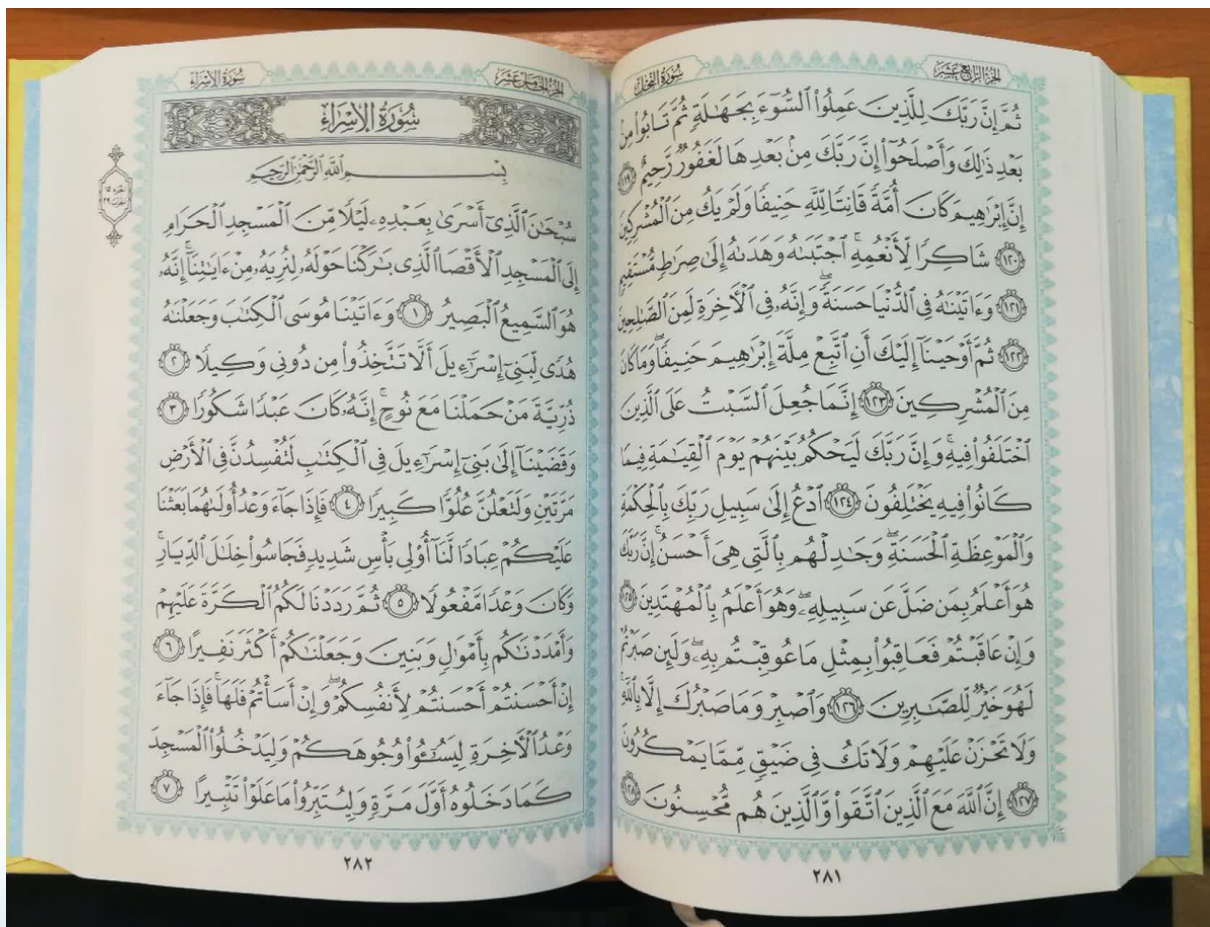 الجزء الرابع عشر
سورة النحل
ثُمَّ إِنَّ رَبَّكَ لِلَّذِينَ عَمِلُوا۟ ٱلسُّوٓءَ بِجَهَـٰلَةٍ ثُمَّ تَابُوا۟ مِنۢ
بَعْدِ ذَٰلِكَ وَأَصْلَحُوٓا۟ إِنَّ رَبَّكَ مِنۢ بَعْدِهَا لَغَفُورٌ رَّحِيمٌ ١١٩
إِنَّ إِبْرَٰهِيمَ كَانَ أُمَّةً قَانِتًا لِّلَّهِ حَنِيفًا وَلَمْ يَكُ مِنَ ٱلْمُشْرِكِينَ
١٢٠ شَاكِرًا لِّأَنْعُمِهِ ۚ ٱجْتَبَىٰهُ وَهَدَىٰهُ إِلَىٰ صِرَٰطٍ مُّسْتَقِيمٍ
١٢١ وَءَاتَيْنَـٰهُ فِى ٱلدُّنْيَا حَسَنَةً ۖ وَإِنَّهُۥ فِى ٱلْـَٔاخِرَةِ لَمِنَ ٱلصَّـٰلِحِينَ
١٢٢ ثُمَّ أَوْحَيْنَآ إِلَيْكَ أَنِ ٱتَّبِعْ مِلَّةَ إِبْرَٰهِيمَ حَنِيفًا ۖ وَمَا كَانَ
مِنَ ٱلْمُشْرِكِينَ ١٢٣ إِنَّمَا جُعِلَ ٱلسَّبْتُ عَلَى ٱلَّذِينَ
ٱخْتَلَفُوا۟ فِيهِ ۚ وَإِنَّ رَبَّكَ لَيَحْكُمُ بَيْنَهُمْ يَوْمَ ٱلْقِيَـٰمَةِ فِيمَا
كَانُوا۟ فِيهِ يَخْتَلِفُونَ ١٢٤ ٱدْعُ إِلَىٰ سَبِيلِ رَبِّكَ بِٱلْحِكْمَةِ
وَٱلْمَوْعِظَةِ ٱلْحَسَنَةِ ۖ وَجَـٰدِلْهُم بِٱلَّتِى هِىَ أَحْسَنُ ۚ إِنَّ رَبَّكَ
هُوَ أَعْلَمُ بِمَن ضَلَّ عَن سَبِيلِهِۦ ۖ وَهُوَ أَعْلَمُ بِٱلْمُهْتَدِينَ ١٢٥
وَإِنْ عَاقَبْتُمْ فَعَاقِبُوا۟ بِمِثْلِ مَا عُوقِبْتُم بِهِۦ ۖ وَلَئِن صَبَرْتُمْ
لَهُوَ خَيْرٌ لِّلصَّـٰبِرِينَ ١٢٦ وَٱصْبِرْ وَمَا صَبْرُكَ إِلَّا بِٱللَّهِ ۚ
وَلَا تَحْزَنْ عَلَيْهِمْ وَلَا تَكُ فِى ضَيْقٍ مِّمَّا يَمْكُرُونَ
١٢٧ إِنَّ ٱللَّهَ مَعَ ٱلَّذِينَ ٱتَّقَوا۟ وَّٱلَّذِينَ هُم مُّحْسِنُونَ ١٢٨
٢٨١
الجزء الخامس عشر
سورة الإسراء
سُورَةُ الإِسْرَاءِ
بِسْمِ ٱللَّهِ ٱلرَّحْمَـٰنِ ٱلرَّحِيمِ
سُبْحَـٰنَ ٱلَّذِىٓ أَسْرَىٰ بِعَبْدِهِۦ لَيْلًا مِّنَ ٱلْمَسْجِدِ ٱلْحَرَامِ
إِلَى ٱلْمَسْجِدِ ٱلْأَقْصَا ٱلَّذِى بَـٰرَكْنَا حَوْلَهُۥ لِنُرِيَهُۥ مِنْ ءَايَـٰتِنَآ ۚ إِنَّهُۥ
هُوَ ٱلسَّمِيعُ ٱلْبَصِيرُ ١ وَءَاتَيْنَا مُوسَى ٱلْكِتَـٰبَ وَجَعَلْنَـٰهُ
هُدًى لِّبَنِىٓ إِسْرَٰٓءِيلَ أَلَّا تَتَّخِذُوا۟ مِن دُونِى وَكِيلًا ٢
ذُرِّيَّةَ مَنْ حَمَلْنَا مَعَ نُوحٍ ۚ إِنَّهُۥ كَانَ عَبْدًا شَكُورًا ٣
وَقَضَيْنَآ إِلَىٰ بَنِىٓ إِسْرَٰٓءِيلَ فِى ٱلْكِتَـٰبِ لَتُفْسِدُنَّ فِى ٱلْأَرْضِ
مَرَّتَيْنِ وَلَتَعْلُنَّ عُلُوًّا كَبِيرًا ٤ فَإِذَا جَآءَ وَعْدُ أُولَىٰهُمَا بَعَثْنَا
عَلَيْكُمْ عِبَادًا لَّنَآ أُو۟لِى بَأْسٍ شَدِيدٍ فَجَاسُوا۟ خِلَـٰلَ ٱلدِّيَارِ ۚ
وَكَانَ وَعْدًا مَّفْعُولًا ٥ ثُمَّ رَدَدْنَا لَكُمُ ٱلْكَرَّةَ عَلَيْهِمْ
وَأَمْدَدْنَـٰكُم بِأَمْوَٰلٍ وَبَنِينَ وَجَعَلْنَـٰكُمْ أَكْثَرَ نَفِيرًا ٦
إِنْ أَحْسَنتُمْ أَحْسَنتُمْ لِأَنفُسِكُمْ ۖ وَإِنْ أَسَأْتُمْ فَلَهَا ۚ فَإِذَا جَآءَ
وَعْدُ ٱلْـَٔاخِرَةِ لِيَسُـۥٓـُٔوا۟ وُجُوهَكُمْ وَلِيَدْخُلُوا۟ ٱلْمَسْجِدَ
كَمَا دَخَلُوهُ أَوَّلَ مَرَّةٍ وَلِيُتَبِّرُوا۟ مَا عَلَوْا۟ تَتْبِيرًا ٧
٢٨٢